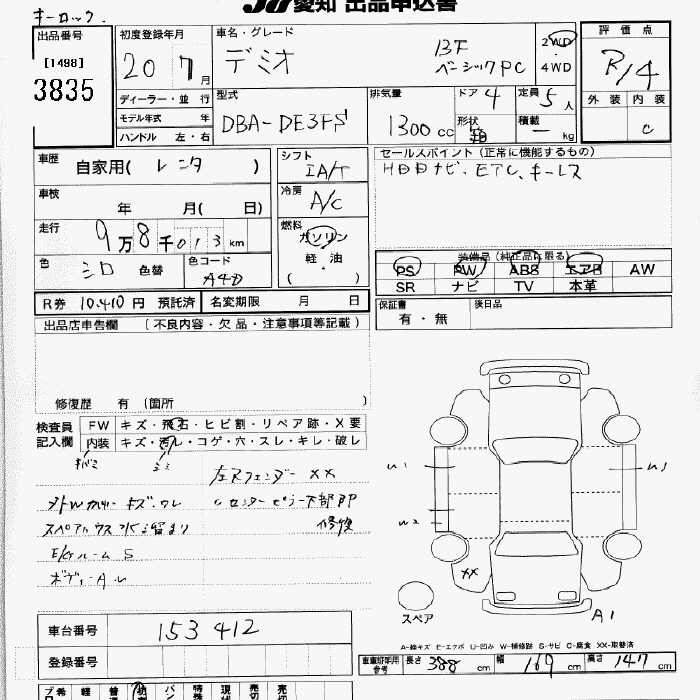 キーロック.
愛知 出品申込書
出品番号
[1498]
3835
初度登録年月
20 7月
車名・グレード
デミオ
13F
ベーシックPC
2WD
4WD
評価点
R/4
外装 内装
C
ディーラー・並行
モデル年式 年
ハンドル 左・右
型式
DBA-DE3FS
排気量
1300cc
ドア 4
形状
定員 5人
積載 ー kg
車歴
自家用(レンタ)
シフト
IA/T
セールスポイント(正常に機能するもの)
HDDナビ.ETC、キーレス
車検
年 月( 日)
冷房
A/C
走行
9万8千013km
燃料
ガソリン
軽油
( )
色
シロ 色替
色コード
A4D
装備品(純正品に限る)
PS PW ABS エアB AW
SR ナビ TV 本革
R券 10.410円 預託済 名変期限 月 日
保証書
有・無
後日品
出品店申告欄 (不良内容・欠品・注意事項等記載)
修復歴 有 (箇所 )
検査員
記入欄
FW キズ・飛石・ヒビ割・リペア跡・X要
内装 キズ・汚レ・コゲ・穴・スレ・キレ・破レ
左Rフェンダー XX
〃センターピラー下部
修復
スペアハウス水溜まり
E/Gルーム S
XX
スペア
A1
車台番号 153412
登録番号
A-線キズ E-エクボ U-凹み W-補修跡 S-サビ C-腐食 XX-取替済
長さ 388 cm 幅 169 cm 高さ 147 cm